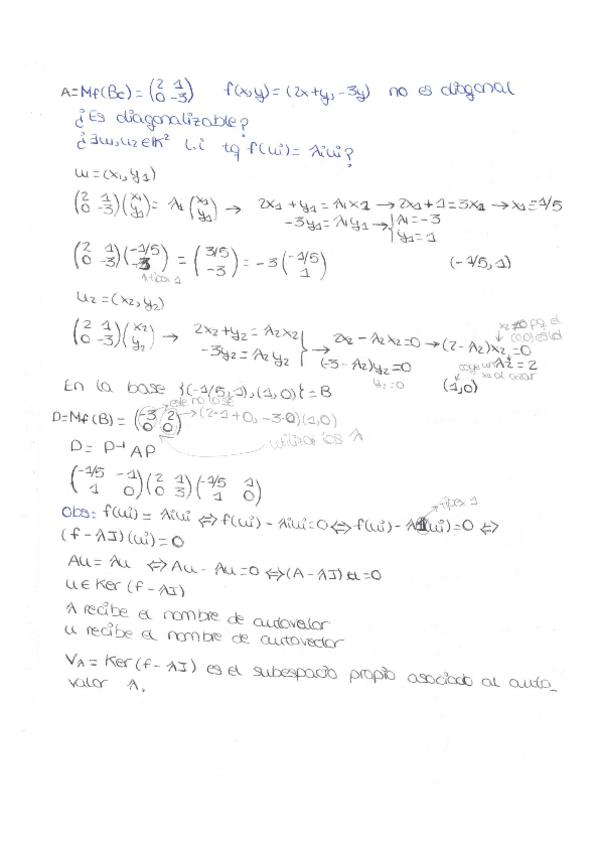 A=Mf(Bc)=(2 1 0 -3) f(x,y)=(2x+y,-3y) no es diagonal
¿Es diagonalizable?
¿∃u1,u2∈K² l.i tq f(ui)=λiui?
u1=(x1,y1)
(2 1 0 -3)(x1 y1)=λ1(x1 y1)→ 2x1+y1=λ1x1→2x1+1=3x1→x1=1/5
-3y1=λ1y1→{λ1=-3
y1=1
(2 1 0 -3)(-1/5 -3)=(3/5 -3)=-3(-1/5 1) (-1/5,1)
tipex 1
u2=(x2,y2)
x2≠0 pq el
(0,0)
(2 1 0 -3)(x2 y2)→ 2x2+y2=λ2x2 -3y2=λ2y2}→ 2x2-λ2x2=0→(2-λ2)x2=0
(-3-λ2)y2=0 λ2=2
y2=0 (1,0) x2 al azar
En la base {(-1/5,1),(1,0)}=B
este no lo sé
D=Mf(B)=(-3 2 0 0)→(2·1+0,-3·0)(1,0)
utilizar los λ
D=P⁻¹AP
(-1/5 -1 1 0)(2 1 0 3)(-1/5 1 1 0)
tipex 1
Obs: f(ui)=λiui⇔f(ui)-λiui=0⇔f(ui)-λ1(ui)=0⇔
(f-λI)(ui)=0
Au=λu ⇔Au-λu=0⇔(A-λI)u=0
u∈Ker(f-λI)
λ recibe el nombre de autovalor
u recibe el nombre de autovector
Vλ=Ker(f-λI) es el subespacio propio asociado al auto_
valor λ.